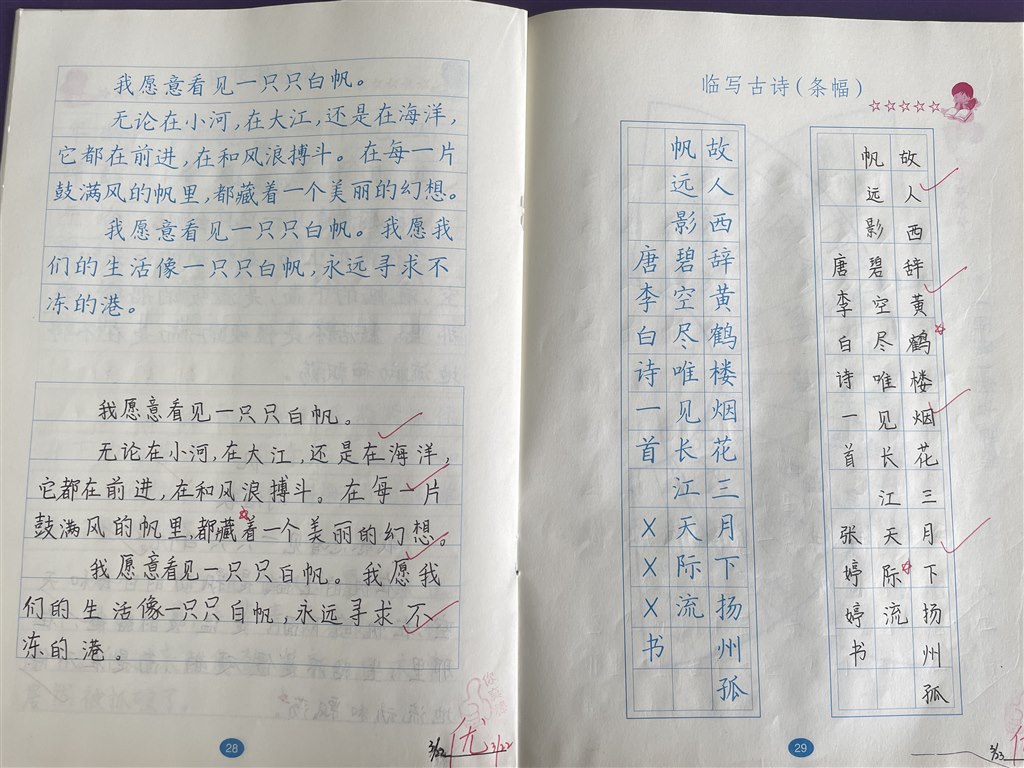 我愿意看见一只只白帆。
无论在小河,在大江,还是在海洋,
它都在前进,在和风浪搏斗。在每一片
鼓满风的帆里,都藏着一个美丽的幻想。
我愿意看见一只只白帆。我愿我
们的生活像一只只白帆,永远寻求不
冻的港。
我愿意看见一只只白帆。
无论在小河,在大江,还是在海洋,
它都在前进,在和风浪搏斗。在每一片
鼓满风的帆里,都藏着一个美丽的幻想。
我愿意看见一只只白帆。我愿我
们的生活像一只只白帆,永远寻求不
冻的港。
3/22
优
3/22
28
临写古诗(条幅)
☆☆☆☆☆
故人西辞黄鹤楼烟花三月下扬州孤
帆远影碧空尽唯见长江天际流
唐李白诗一首 X X X 书
故人西辞黄鹤楼烟花三月下扬州孤
帆远影碧空尽唯见长江天际流
唐李白诗一首 张婷婷书
29
3/23